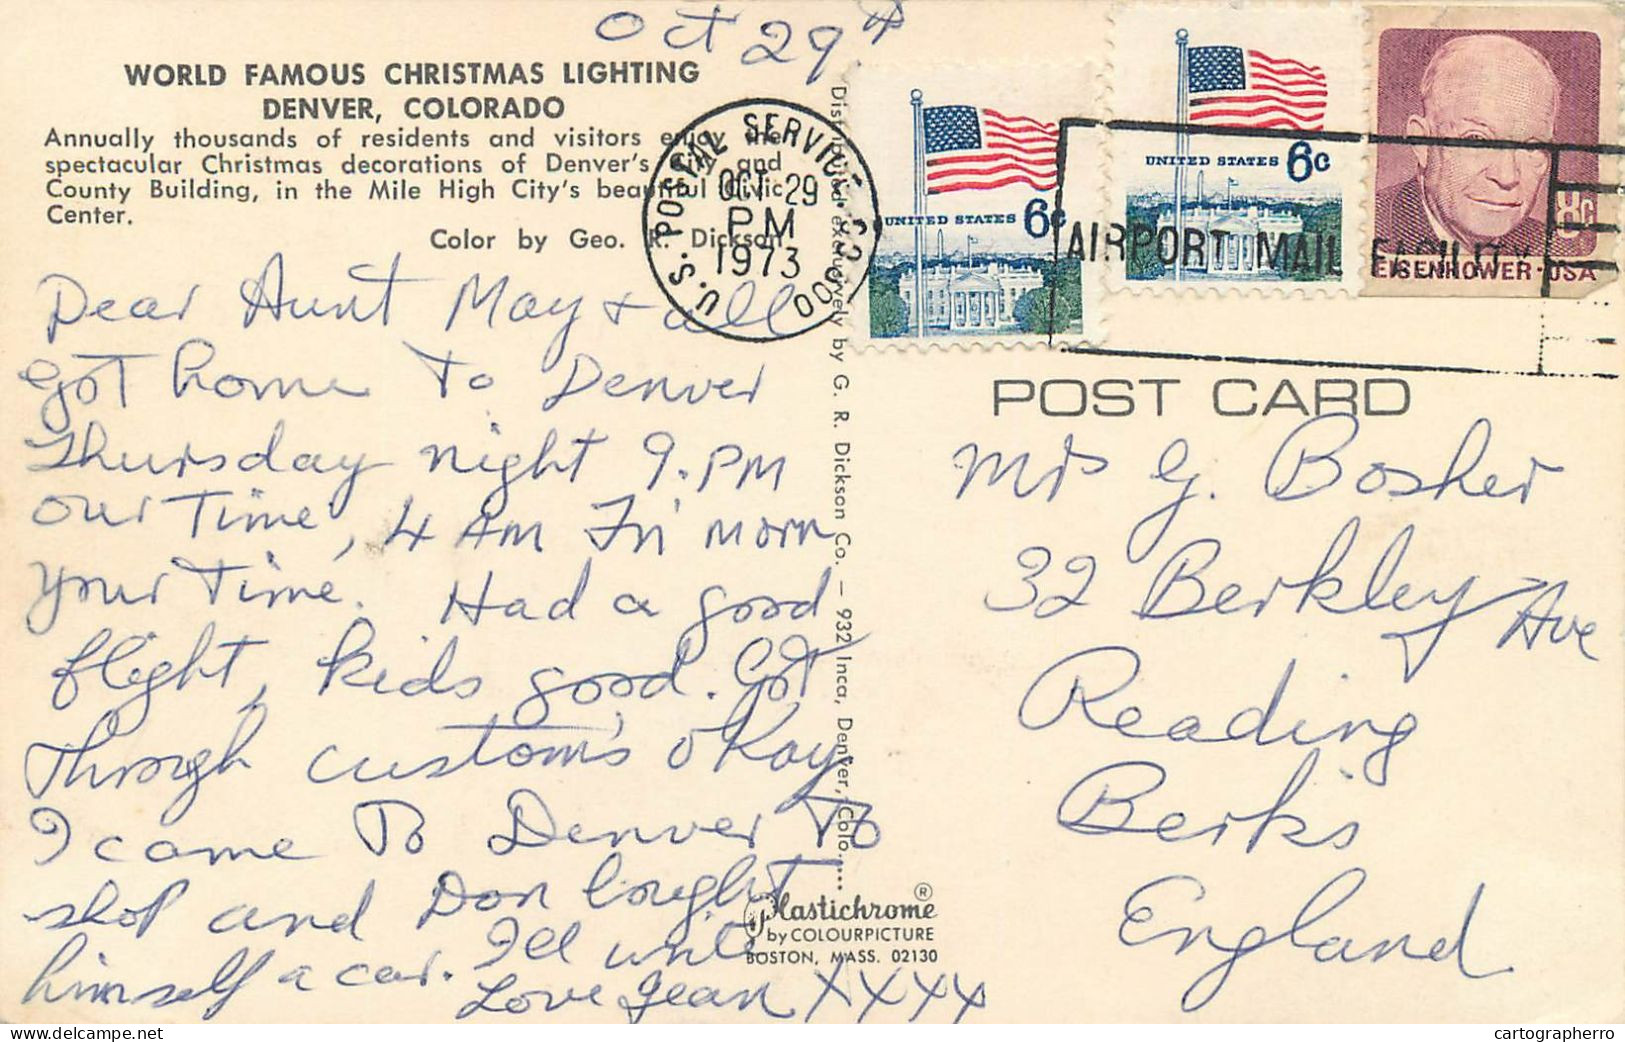 Oct 29th
WORLD FAMOUS CHRISTMAS LIGHTING
DENVER, COLORADO
Annually thousands of residents and visitors enjoy the
spectacular Christmas decorations of Denver's City and
County Building, in the Mile High City's beautiful Civic
Center.
Color by Geo. R. Dickson
Dear Aunt May & all
Got home to Denver
Thursday night 9. PM
our Time, 4 AM Fri morn
your Time. Had a good
flight, kids good. Got
through custom's okay
I came To Denver To
shop and Don bought
himself a car. I'll write
Love Jean XXXX
Distributed exclusively by G. R. Dickson Co. — 932 Inca, Denver, Colo.
U.S. POSTAL SERVICE
OCT 29
PM
1973
000
UNITED STATES 6c
UNITED STATES 6c
8c
EISENHOWER·USA
AIRPORT MAIL FACILITY
POST CARD
Mrs G. Bosher
32 Berkley Ave
Reading
Berks
England
Plastichrome ®
by COLOURPICTURE
BOSTON, MASS. 02130
cartographerro